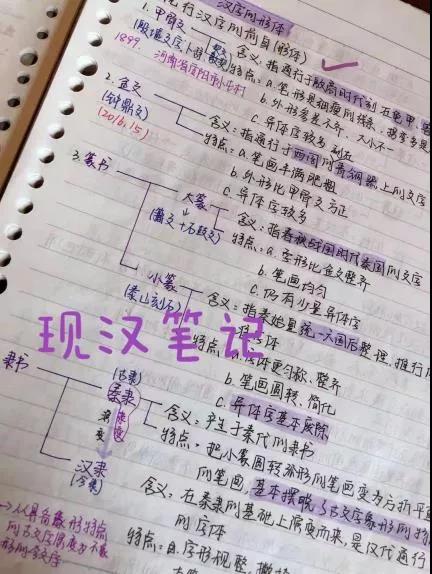 汉字的形体
现行汉字的前身(形体)
1. 甲骨文
(殷墟文字、卜辞、契文)
1899.
河南安阳小屯村
含义:指通行于殷商时代刻在龟甲、
特点:a. 笔形是细瘦的线条,拐弯多是
b. 外形参差不齐、大小不一
c. 异体字较多
2. 金文
(钟鼎文)
(2016.15)
含义:指通行于西周的青铜器上的文字
特点:a. 笔画丰满肥粗
b. 外形比甲骨文方正
c. 异体字较多
3. 篆书
大篆
(籀文+石鼓文)
含义:指春秋战国时代秦国的文字
特点:a. 字形比金文整齐
b. 笔画均匀
c. 仍有少量异体字
小篆
(泰山刻石)
含义:指秦始皇统一六国后整理、推行的
特点:a. 字体更匀称、整齐
b. 笔画圆转、简化
c. 异体字基本废除
现汉笔记
隶书
(古隶)
秦隶
隶变
含义:产生于秦代的隶书
特点:把小篆圆转弧形的笔画变为方折平直
的笔画,基本摆脱了古文字象形的特
汉隶
(今隶)
含义:在秦隶的基础上演变而来,是汉代通行
的字体
特点:a. 字形规整,撇捺
→从具备象形特点
的古文字演变为不象
形的今文字